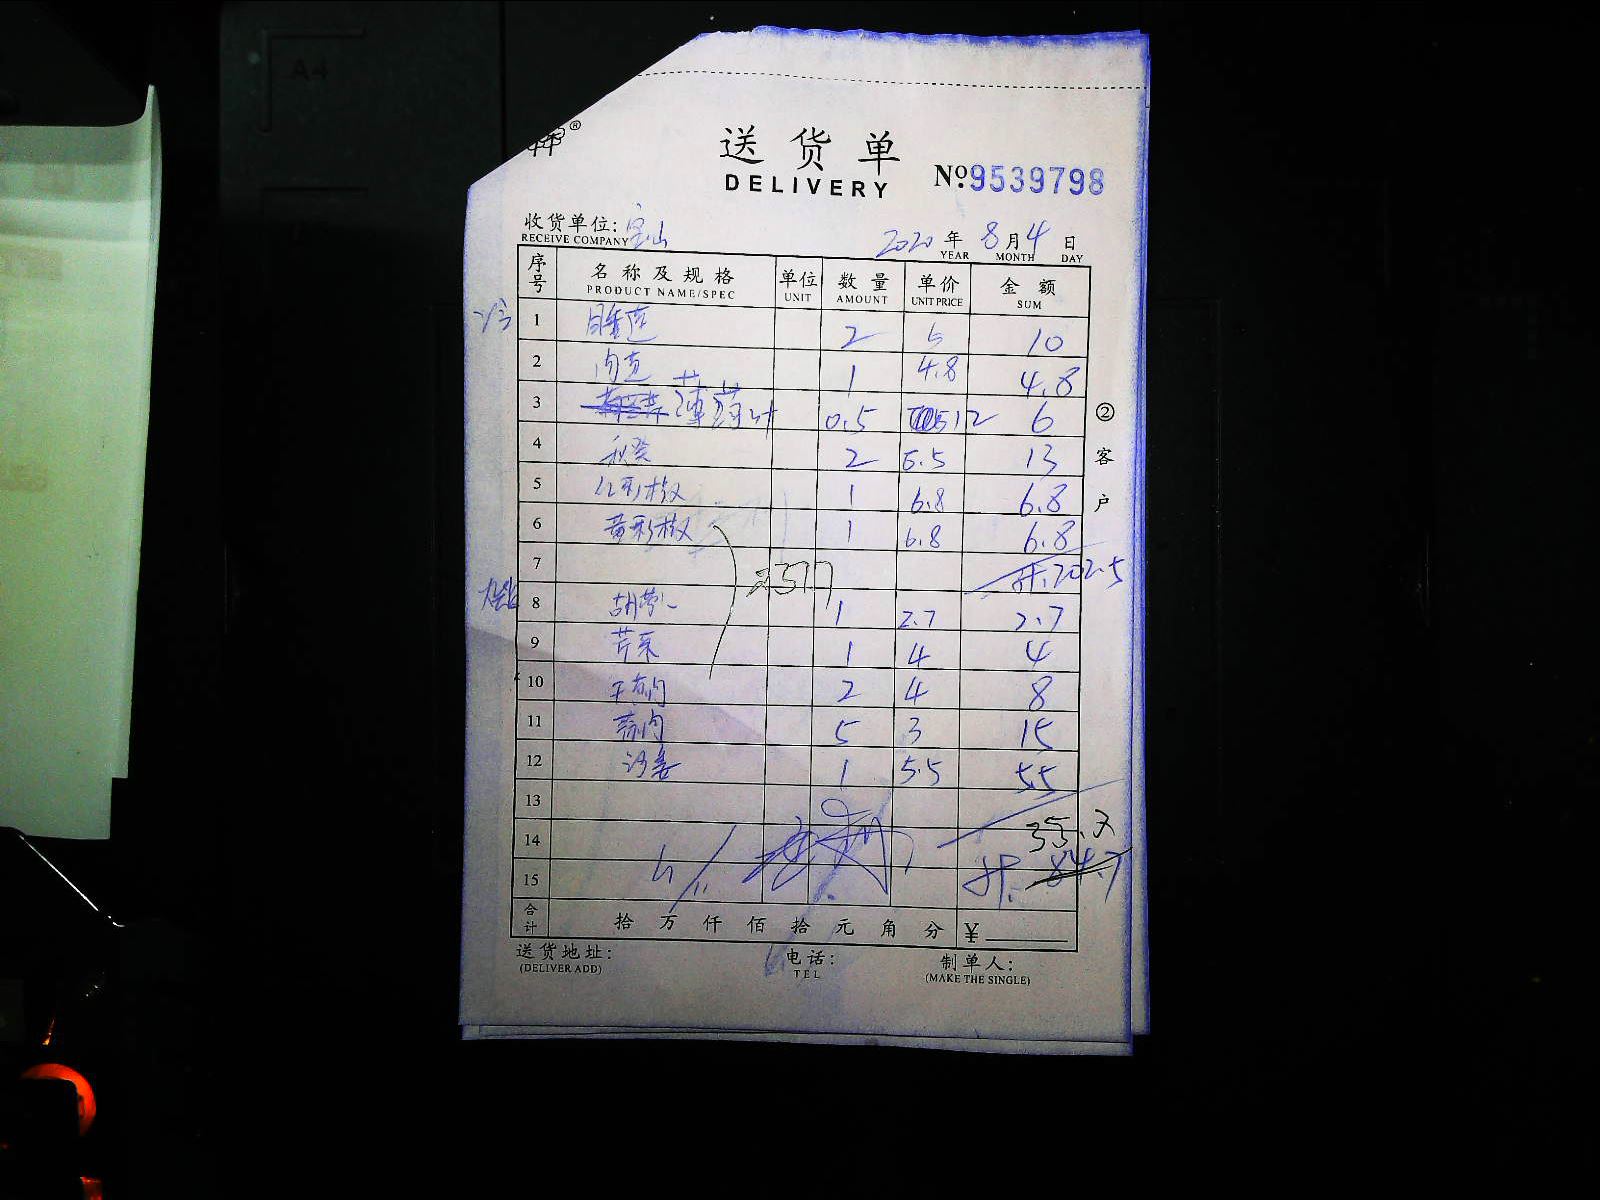 A4
®
送货单
DELIVERY
No.9539798
收货单位: 宝山
RECEIVE COMPANY
2020 年 8 月 4 日
YEAR MONTH DAY
序号 名称及规格 单位 数量 单价 金额
PRODUCT NAME/SPEC UNIT AMOUNT UNIT PRICE SUM
1 睡莲 2 5 10
2 1 4.8 4.8
3 薄荷叶 0.5 12 6
4 秋葵 2 6.5 13
5 红彩椒 1 6.8 6.8
6 黄彩椒 1 6.8 6.8
7 计.202.5
8 胡萝卜 1 2.7 2.7
9 芹菜 1 4 4
10 2 4 8
11 5 3 15
12 沙姜 1 5.5 5.5
13
14 35.2
15 计. 84.7
合计 拾 万 仟 佰 拾 元 角 分 ¥
送货地址: 电话: 制单人:
(DELIVER ADD) TEL (MAKE THE SINGLE)
② 客户